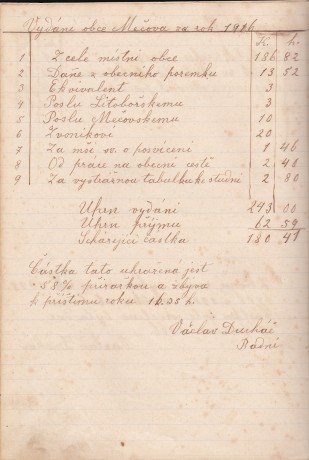 Vydání obce Mečova za rok 1916
K. h.
1 Z celé místní obce 186 82
2 Daně z obecního pozemku 13 52
3 Ekvivalent 3
4 Poslu Litobořskému 3
5 Poslu Mečovskému 10
6 Zvoníkově 20
7 Za mši sv. o posvícení 1 46
8 Od práce na obecní cestě 2 40
9 Za výstražnou tabulku ke studni 2 80
Uhrn vydání 243 00
Uhrn příjmu 62 59
Scházející částka 180 41
Částka tato uhražená jest
58% přirážkou a zbývá
k příštímu roku
Václav
Radní